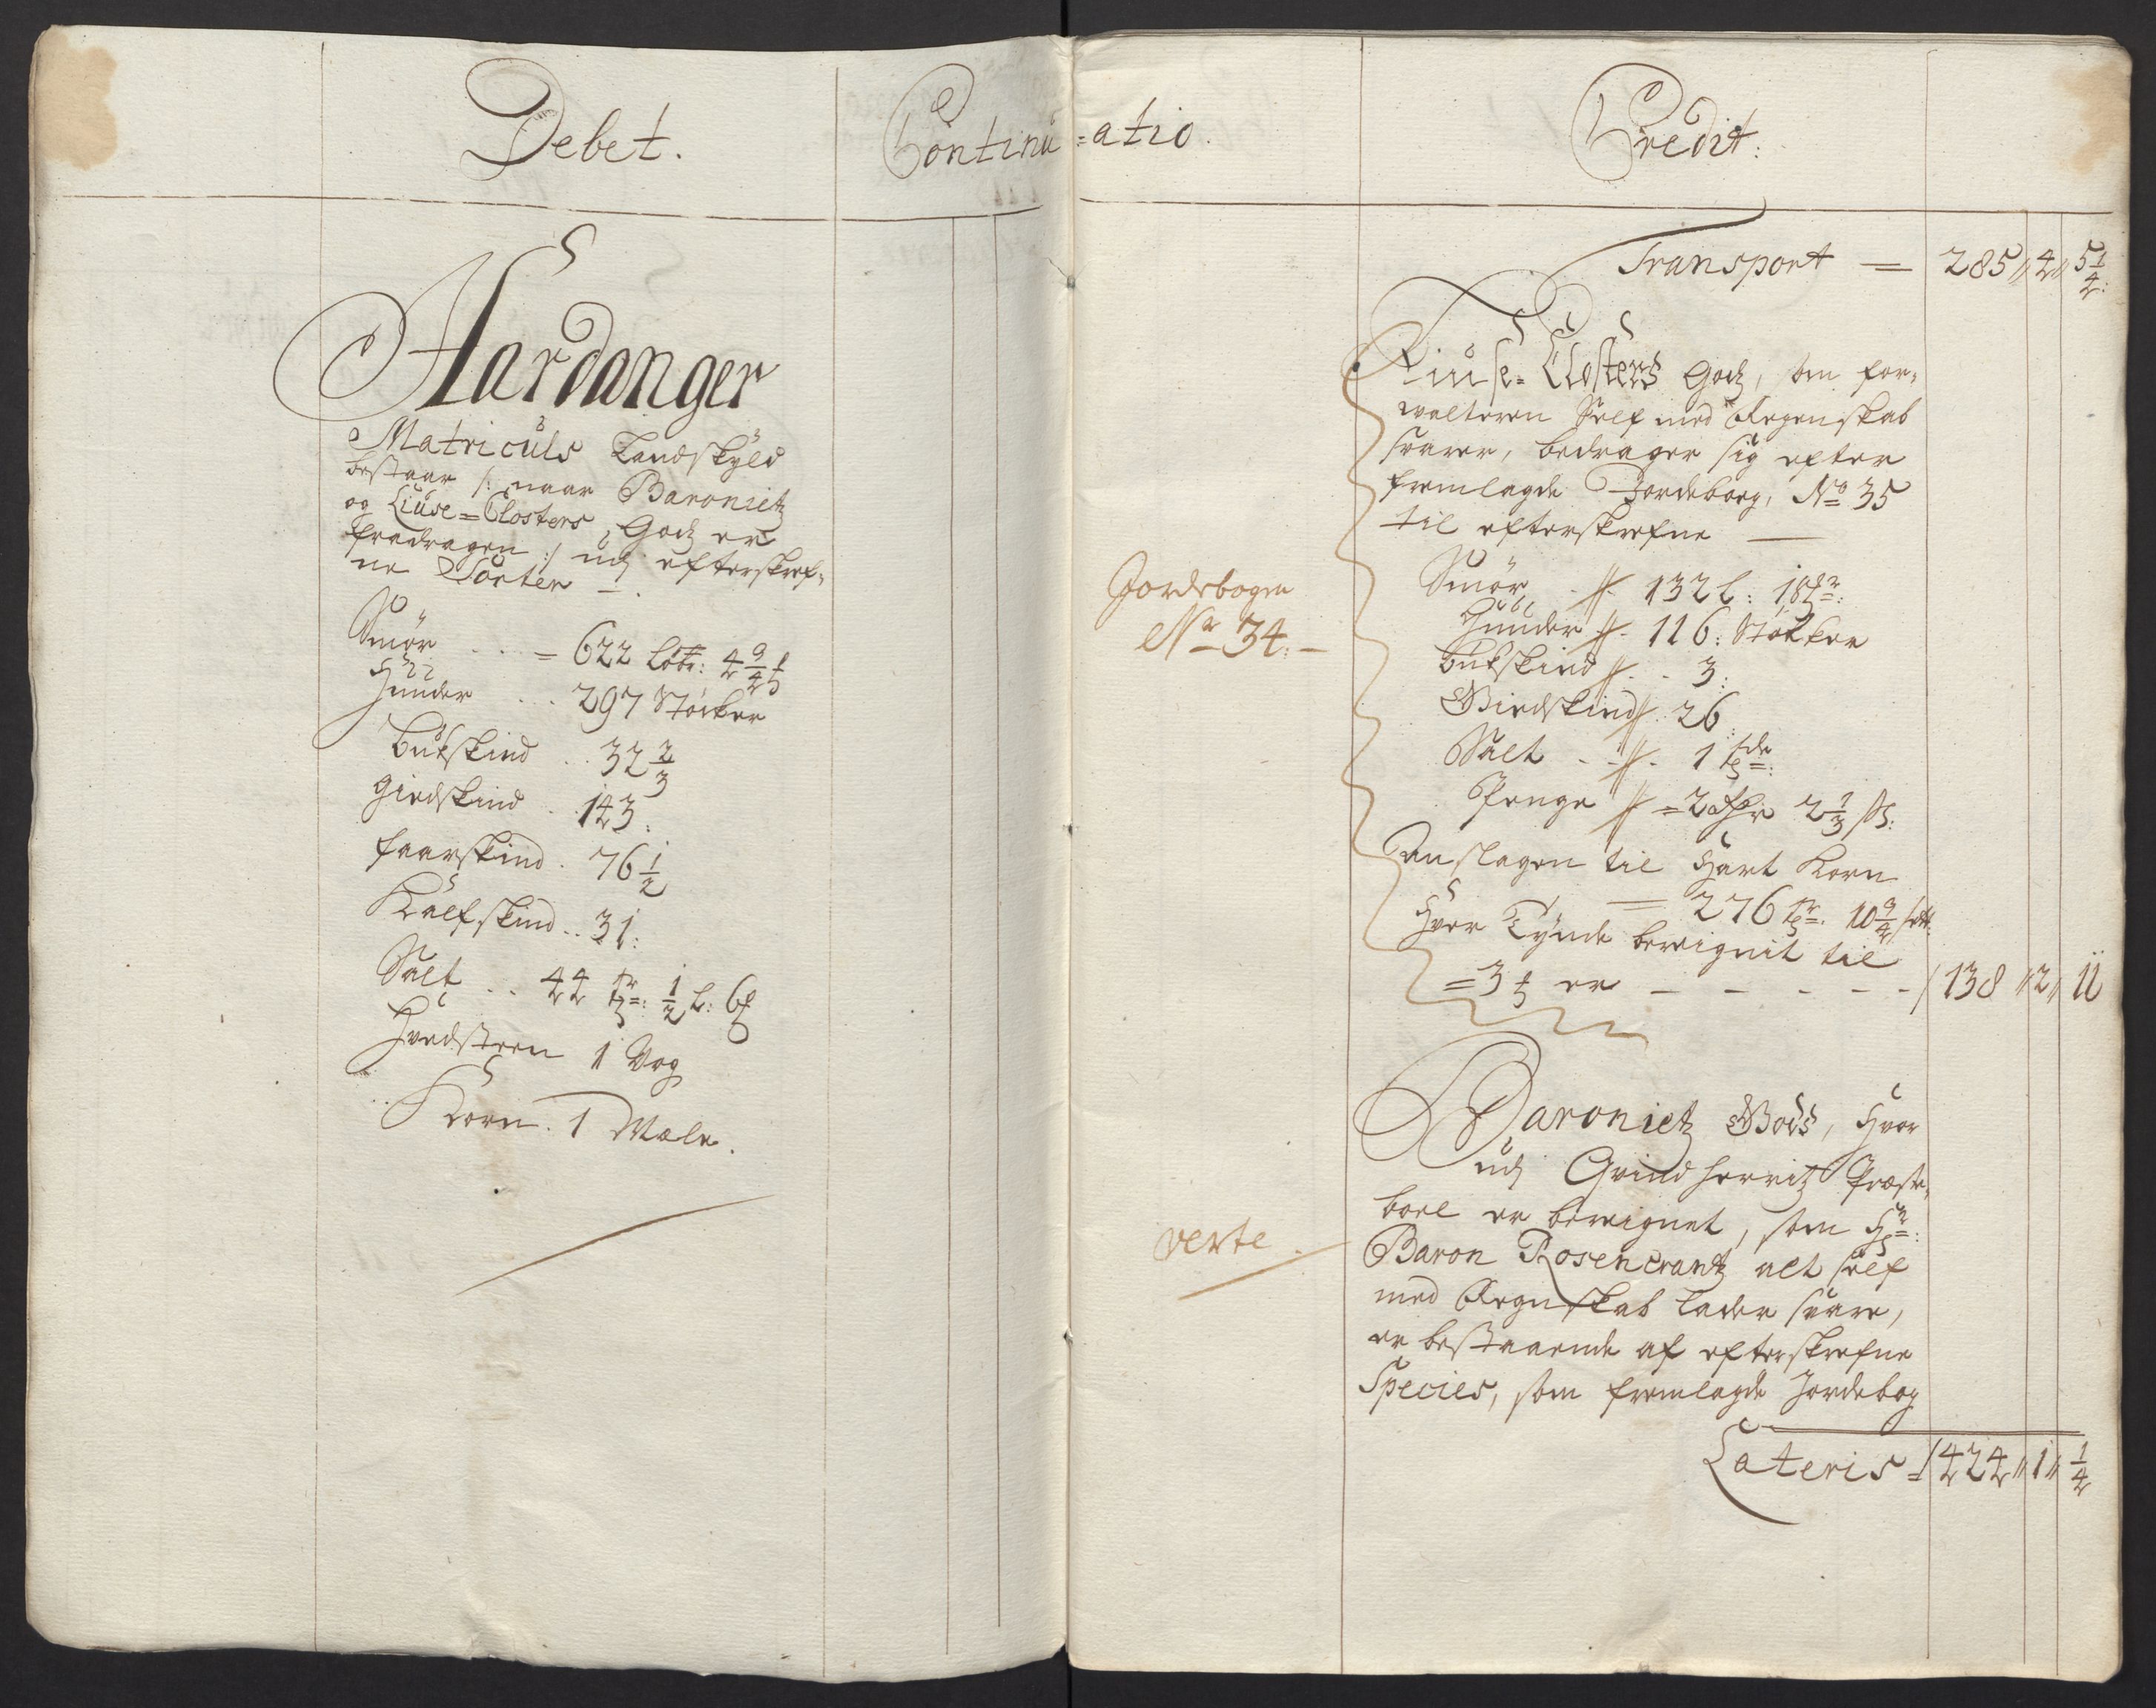 Debet. Continu=atio. Credit:
Hardanger
Matriculs Landskyld
bestaar /: naar Baroniets
og Liuse=Closters Godz er
fradragen :/ udj efterskref=
ne Sorter
Smør = 622 Løbr: 4 3/4
Huuder 297 Støcker
Bukskind 32 2/3
Giedskind 143:
Faarskind 76 1/2
Kalfskind 31:
Salt 44 tr: 1/2 L: 6
Hvedsteen 1 Vog
Korn. 1 Mæle.
Transport = 285 // 4 // 5 1/4:
Liuse=Closters Godz, som for=
walteren Self med Regenskab
svarer, bedrager sig efter
fremlagde Jordebog, No 35
til efterskrefne
Jordebogen
Nr 34:
Smør 132 L: 18
Huuder 116: Støkker
Bukskind 3:
Giedskind 26
Salt 1 tde:
Penge = 2 Dhr 2 1/3 ß:
Anslagen til Hart Korn
= 276 tr: 10 3/4
Hver Tynde bereignit til
= 3 er / 138 // 2 // 11
Baroniets Gods, Hvor
udj Qvindherritz Præste=
boel er bereignet, som Hr:
Baron Rosencrantz alt self
med Regnskab lader svare,
er bestaaende af efterskrefne
Species, som fremlagde Jordebog
verte
Lateris = 424 // 1 // 1/4